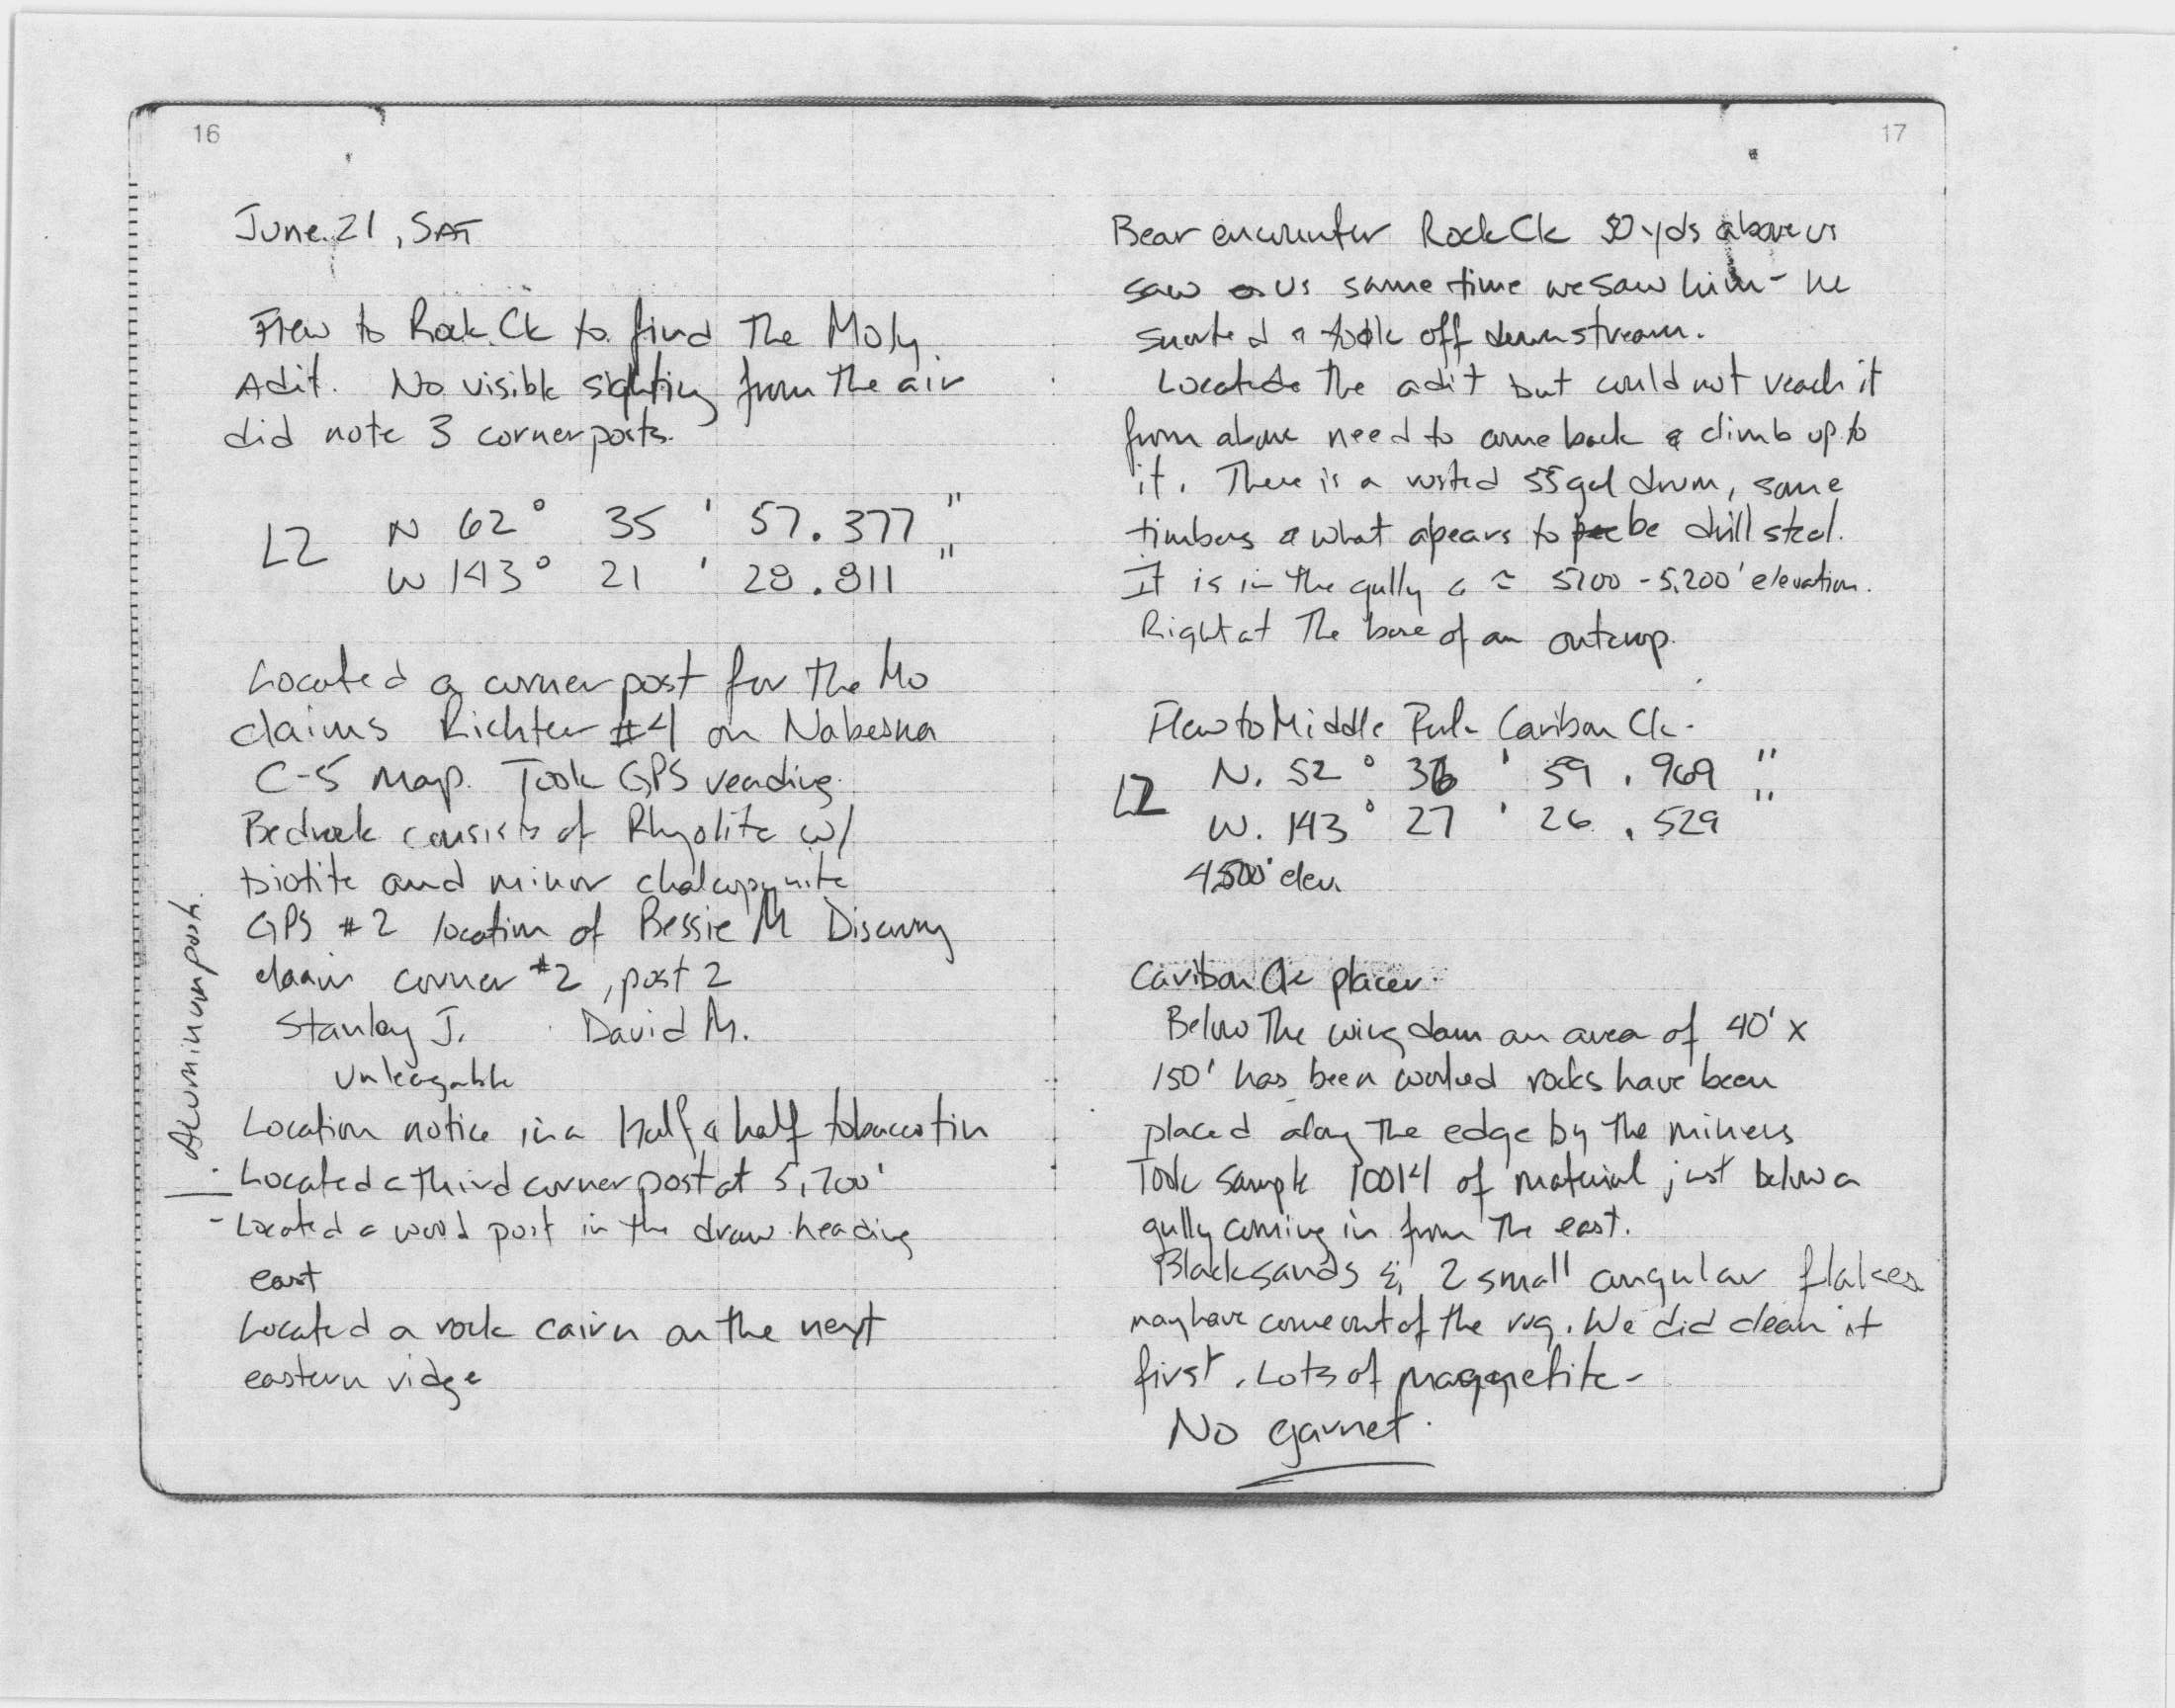 16
June 21, SAT
Flew to Rock Ck to find The Moly.
Adit. No visible sighting from The air
did note 3 corner posts.
LZ N 62° 35 ' 57.377 "
W 143° 21 ' 28.811 "
Located a corner post for The Mo
claims Richter #4 on Nabesna
C-5 Map. Took GPS reading.
Bedrock consists of Rhyolite w/
biotite and minor chalcopyrite
GPS #2 location of Bessie M Discovry
claim corner #2, post 2
Stanley J. David M.
Unleagable
Location notice in a Half & half tobacco tin
- Located a third corner post at 5,200'
- Located a wood post in the draw heading
east
Located a rock cairn on the next
eastern ridge
Aluminum posts.
17
Bear encounter Rock Ck 30 yds above us
saw us same time we saw him - he
snorted & took off downstream.
Located the adit but could not reach it
from above need to come back & climb up to
it. There is a rusted 55 gal drum, some
timbers & what apears to be drill steel.
It is in the gully @ ≈ 5100 - 5,200' elevation.
Right at The base of an outcrop.
Flew to Middle Fork Caribou Ck -
LZ N. 52° 36 ' 59 . 969 "
W. 143° 27 ' 26 . 529 "
4500' elev
Caribou Ck placer.
Below The wing dam an area of 40' x
150' has been worked rocks have been
placed along The edge by The miners
Took sample 10014 of material just below a
gully coming in from The east.
Black sands & 2 small angular flakes
may have come out of the rug. We did clean it
first. Lots of magnetite -
No garnet.